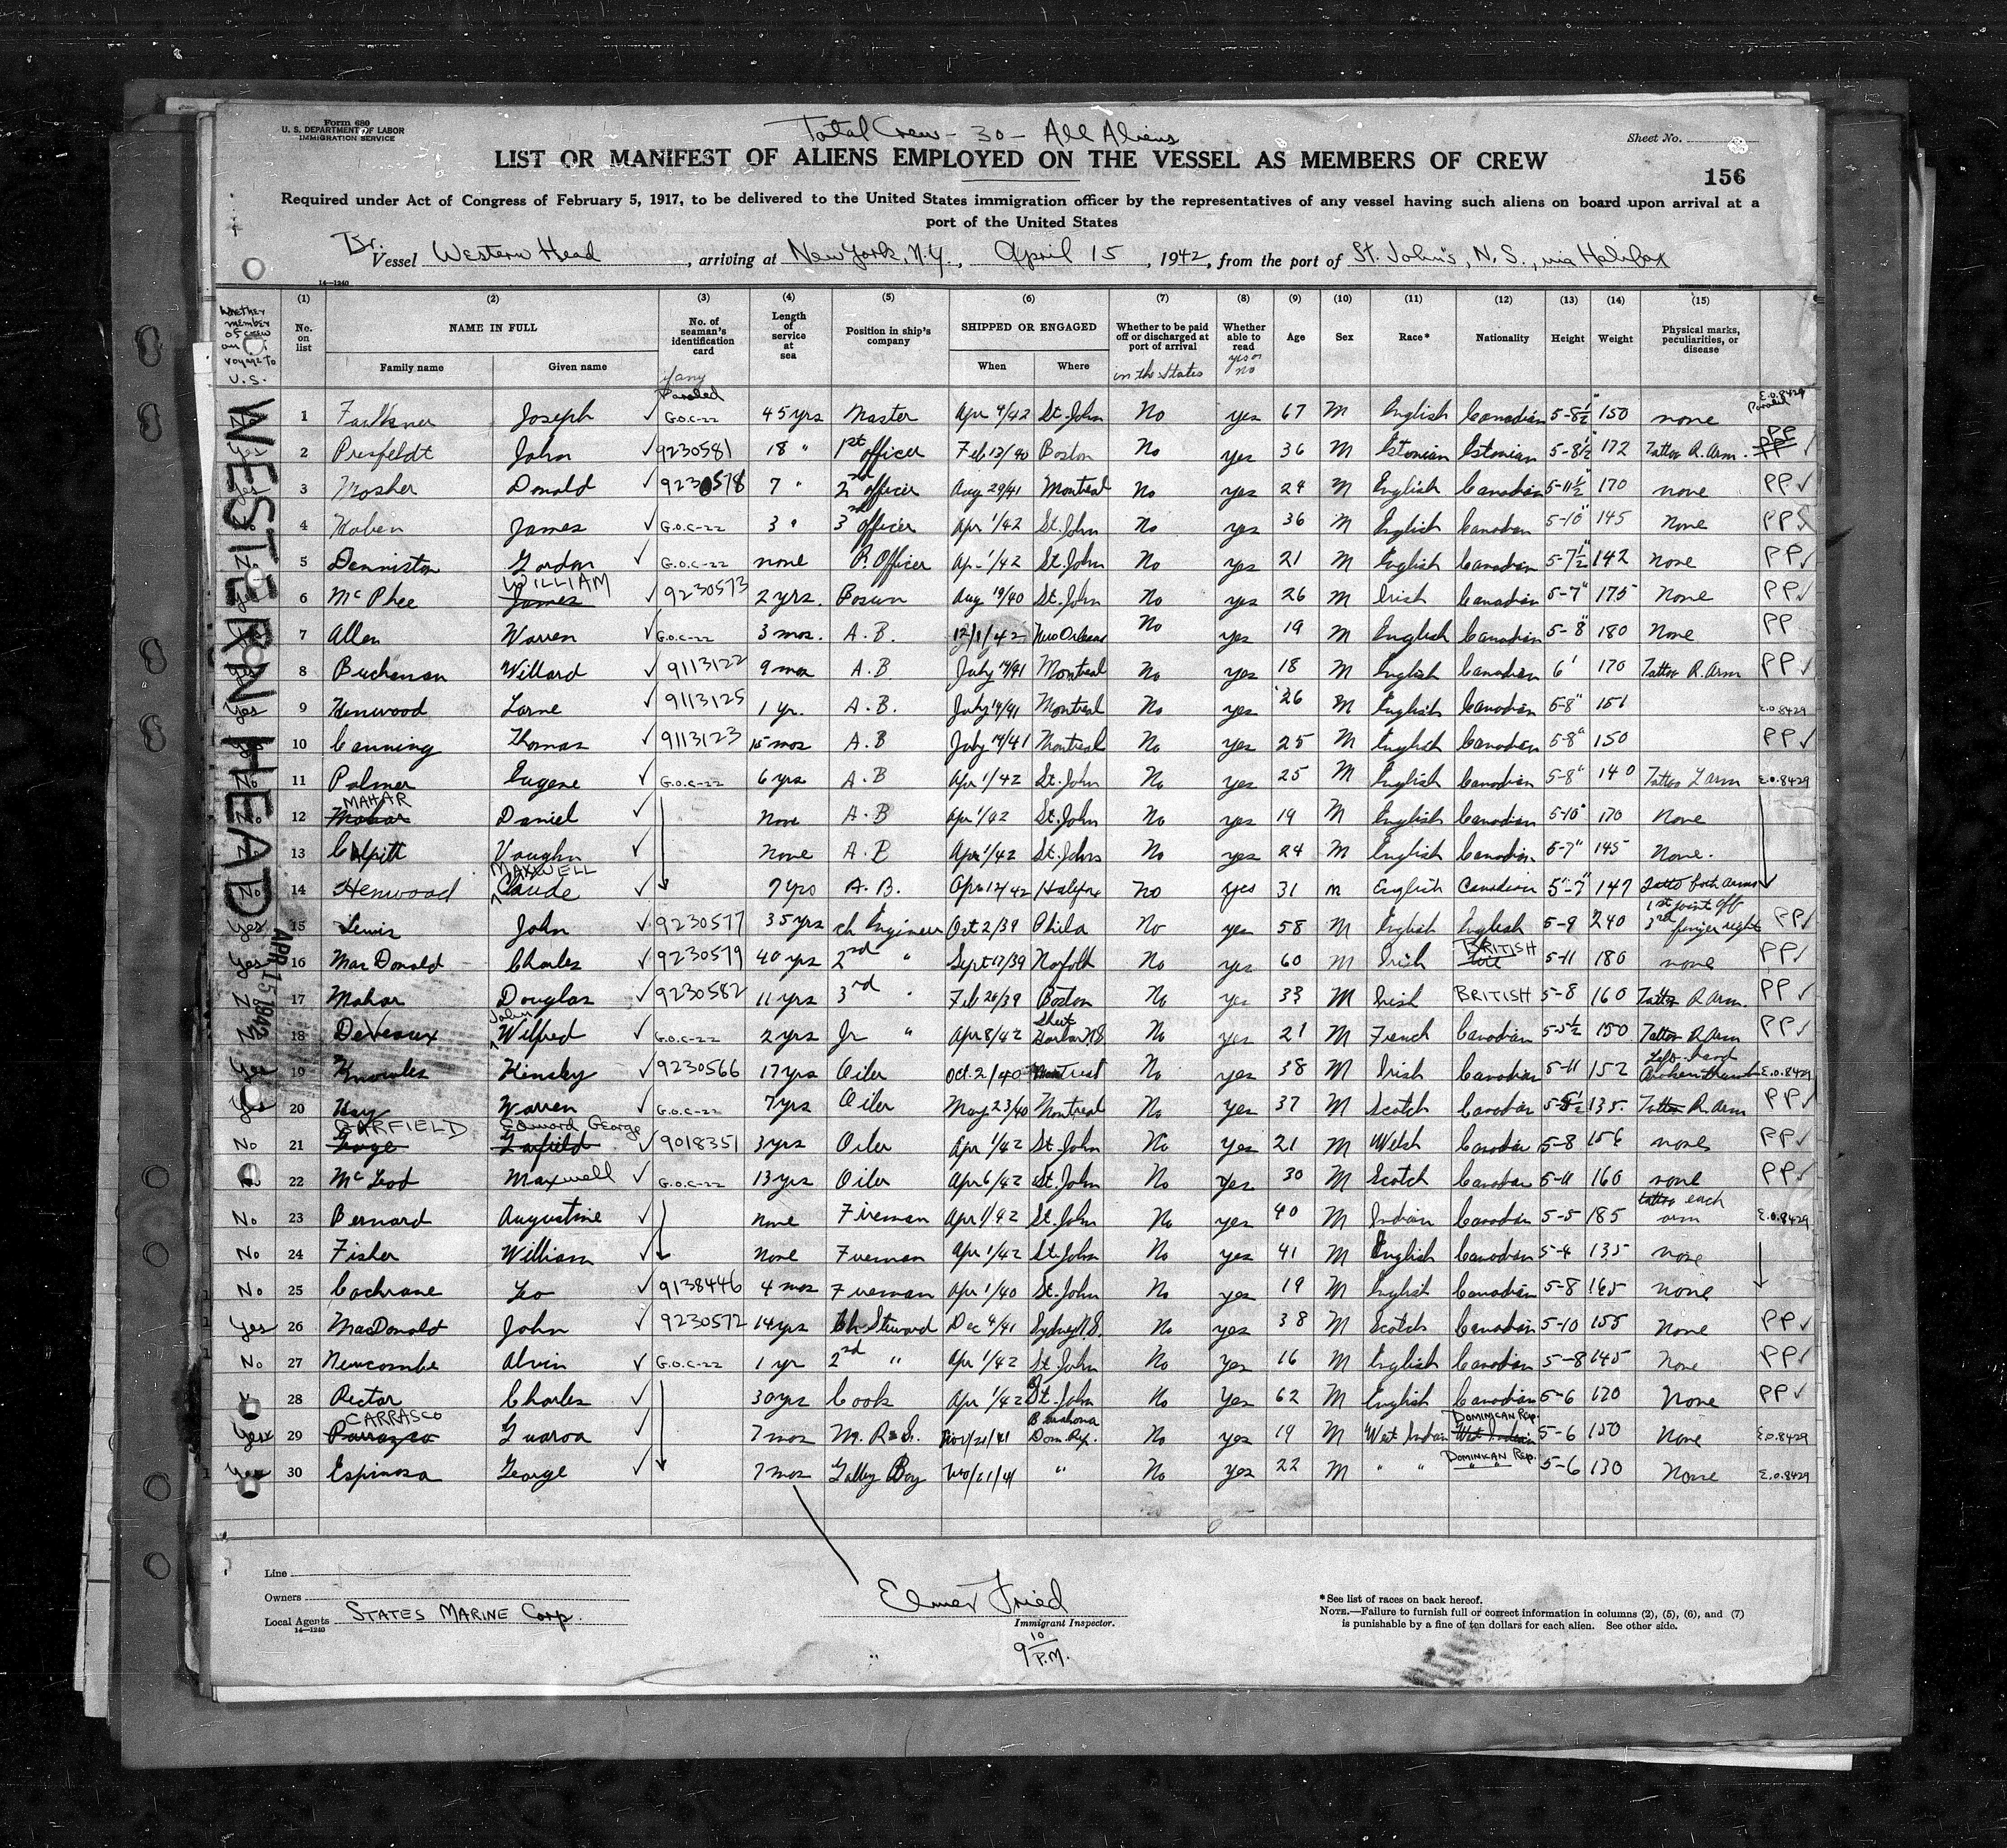 Form 680
U. S. DEPARTMENT OF LABOR
IMMIGRATION SERVICE
Total Crew - 30 - All Aliens
Sheet No.
LIST OR MANIFEST OF ALIENS EMPLOYED ON THE VESSEL AS MEMBERS OF CREW
156
Required under Act of Congress of February 5, 1917, to be delivered to the United States immigration officer by the representatives of any vessel having such aliens on board upon arrival at a
port of the United States
Br. Vessel Western Head, arriving at New York, N.Y., April 15, 1942, from the port of St. John's, N.S., via Halifax
14-1240
Whether member of crew on voyage to U.S.
(1) No. on list (2) NAME IN FULL Family name Given name (3) No. of seaman's identification card if any (4) Length of service at sea (5) Position in ship's company (6) SHIPPED OR ENGAGED When Where (7) Whether to be paid off or discharged at port of arrival in the States (8) Whether able to read yes or no (9) Age (10) Sex (11) Race* (12) Nationality (13) Height (14) Weight (15) Physical marks, peculiarities, or disease
WESTERN HEAD
APR 15 1942
1 Faulkner Joseph ✓ Paroled G.O.C-22 45 yrs Master Apr 4/42 St. John No yes 67 M English Canadian 5-8½" 150 none E.O.8429 Paroled
Yes 2 Presfeldt John ✓ 9230581 18 " 1st officer Feb 13/40 Boston No yes 36 M Estonian Estonian 5-8½ 172 Tattoo R. Arm. PP ✓
3 Mosher Donald ✓ 9230578 7 " 2nd officer Aug 29/41 Montreal No yes 24 M English Canadian 5-11½" 170 none PP ✓
4 Haben James ✓ G.O.C-22 3 " 3rd officer Apr 1/42 St. John No yes 36 M English Canadian 5-10" 145 None PP
5 Denniston Gordon ✓ G.O.C-22 none P. Officer Apr 1/42 St. John No yes 21 M English Canadian 5-7½" 142 none PP ✓
6 McPhee James WILLIAM ✓ 9230573 2 yrs. Bosun Aug 19/40 St. John No yes 26 M Irish Canadian 5-7" 175 None PP ✓
7 Allen Warren ✓ G.O.C-22 3 mos. A.B. New Orleans No yes 19 M English Canadian 5-8" 180 None PP
8 Buchanan Willard ✓ 9113122 9 mos A.B July 14/41 Montreal No yes 18 M English Canadian 6' 170 Tattoo R. Arm PP ✓
Yes 9 Henwood Lorne ✓ 9113125 1 yr. A.B. July 14/41 Montreal No yes 26 M English Canadian 5-8" 151 E.O.8429
10 Canning Thomas ✓ 9113123 15 mos A.B July 14/41 Montreal No yes 25 M English Canadian 5-8" 150 PP ✓
No 11 Palmer Eugene ✓ G.O.C-22 6 yrs A.B Apr 1/42 St. John No yes 25 M English Canadian 5-8" 140 Tattoo L arm E.O.8429
12 Mahar MAHAR Daniel ✓ None A.B Apr 1/42 St. John No yes 19 M English Canadian 5-10" 170 None
13 Colpitt Vaughn ✓ None A.B Apr 1/42 St. John No yes 24 M English Canadian 5-7" 145 None.
No 14 Henwood Claude MAXWELL ✓ 7 yrs A.B. Apr 12/42 Halifax no yes 31 m English Canadian 5'-7" 147 Tatto both arms
Yes 15 Lewis John ✓ 9230577 35 yrs ch Engineer Oct 2/39 Phila No yes 58 M English English 5-9 240 1st joint off 3rd finger right PP ✓
Yes 16 MacDonald Charles ✓ 9230579 40 yrs 2nd " Sept 17/39 Norfolk No yes 60 M Irish BRITISH 5-11 180 none PP ✓
No 17 Mahar Douglas ✓ 9230582 11 yrs 3rd " Feb 26/39 Boston No yes 33 M Irish BRITISH 5-8 160 Tattoo R Arm. PP ✓
No 18 Deveaux John Wilfred ✓ G.O.C-22 2 yrs Jr " Apr 8/42 Sheet Harbor N.S No yes 21 M French Canadian 5-5½ 150 Tattoo R Arm PP ✓
Yes 19 Knowles Kinsley ✓ 9230566 17 yrs Oiler Oct. 2/40 Montreal No yes 38 M Irish Canadian 5-11 152 Left hand Broken thumb E.O.8429
Yes 20 Hay Warren ✓ G.O.C-22 7 yrs Oiler May 23/40 Montreal No Yes 37 M Scotch Canadian 5-8½ 135. Tattoo R. Arm PP ✓
No 21 George GARFIELD Garfield Edward George ✓ 9018351 3 yrs Oiler Apr 1/42 St. John No Yes 21 M Welsh Canadian 5-8 156 none PP ✓
22 McLeod Maxwell ✓ G.O.C-22 13 yrs Oiler Apr 6/42 St. John No Yes 30 M Scotch Canadian 5-11 160 none PP ✓
No 23 Bernard Augustine ✓ none Fireman Apr 1/42 St. John No yes 40 M Indian Canadian 5-5 185 tattoo each arm E.O.8429
No 24 Fisher William ✓ none Fireman Apr 1/42 St. John No yes 41 M English Canadian 5-4 135 none
No 25 Cochrane Leo ✓ 9138446 4 mos Fireman Apr 1/40 St. John No yes 19 M English Canadian 5-8 165 none
Yes 26 MacDonald John ✓ 9230572 14 yrs Ch Steward Dec 4/41 Sydney N.S. No yes 38 M Scotch Canadian 5-10 155 None PP ✓
No 27 Newcombe Alvin ✓ G.O.C-22 1 yr 2nd " Apr 1/42 St. John No Yes 16 M English Canadian 5-8 145 None PP ✓
28 Rector Charles ✓ 30 yrs Cook Apr 1/42 St. John No Yes 62 M English Canadian 5-6 120 None PP ✓
Yes 29 Parrazco CARRASCO Guaroa ✓ 7 mos M. R. S. Nov/21/41 Barahona Dom. Rep. No yes 19 M West Indian West Indian DOMINICAN REP. 5-6 150 None E.O.8429
Yes 30 Espinosa George ✓ 7 mos Galley Boy Nov/21/41 " No yes 22 M " " DOMINICAN REP. 5-6 130 None E.O.8429
Line
Owners
Local Agents STATES MARINE Corp.
14-1240
Elmer Fried
Immigrant Inspector.
9 10/P.M.
*See list of races on back hereof.
NOTE.—Failure to furnish full or correct information in columns (2), (5), (6), and (7)
is punishable by a fine of ten dollars for each alien. See other side.